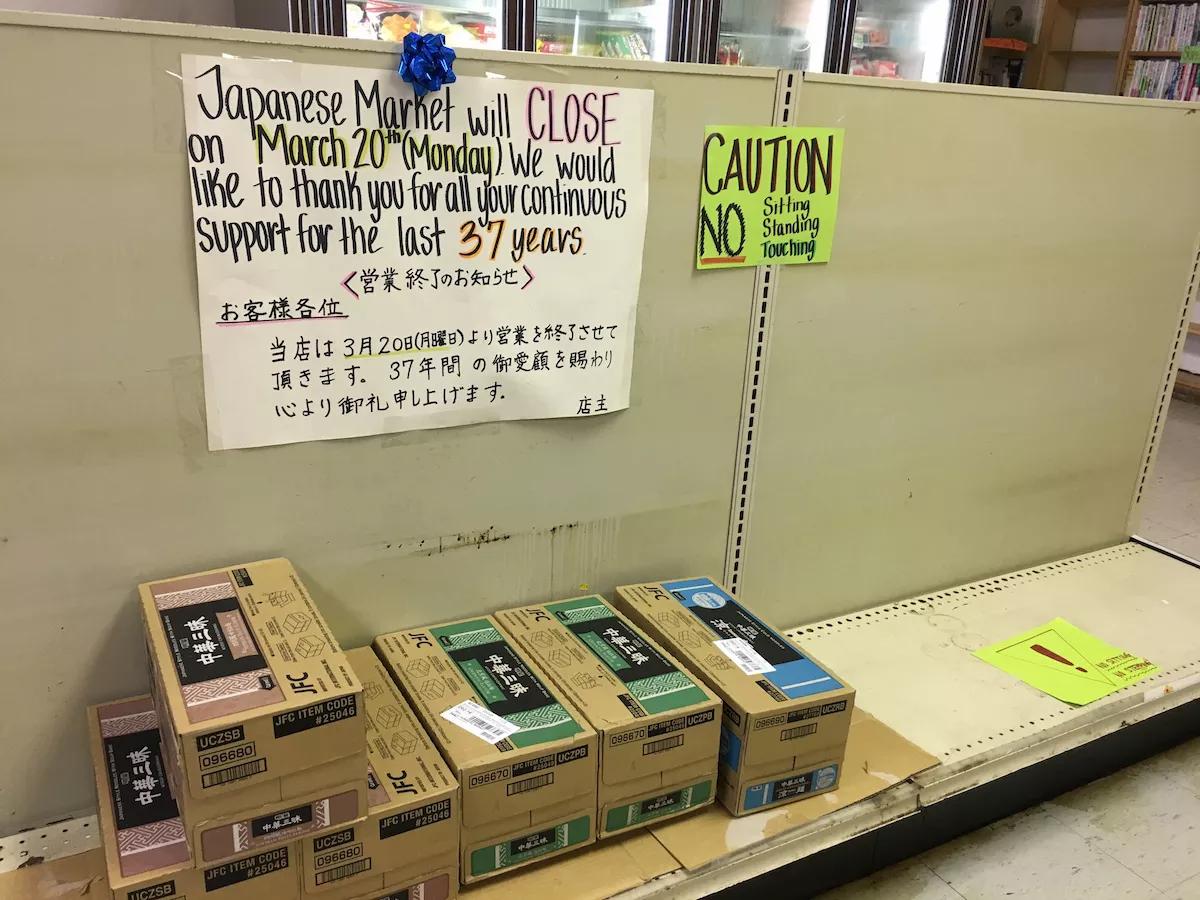 Japanese Market will CLOSE
on March 20th (Monday). We would
like to thank you for all your continuous
support for the last 37 years.
<営業終了のお知らせ>
お客様各位
当店は3月20日(月曜日)より営業を終了させて
頂きます。37年間の御愛顧を賜わり
心より御礼申し上げます。
店主
CAUTION
NO Sitting
Standing
Touching
!
NO SITTING
中華三味
JFC
JFC ITEM CODE
#25046
UCZSB
096680
中華三味
中華三味
JFC ITEM CODE
#25046
UCZSB
JFC
JFC ITEM CODE
#25046
UCZSB
096680
JFC
中華三味
096670
UCZPB
中華三味
JFC
中華三味
096670
UCZPB
中華三味
JFC
096690
UCZRB
中華三味